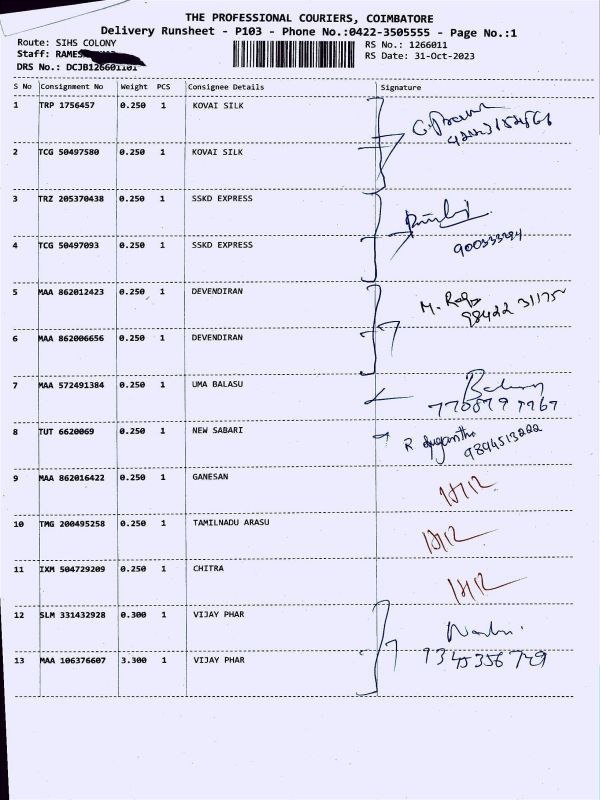 THE PROFESSIONAL COURIERS, COIMBATORE
Delivery Runsheet - P103 - Phone No.:0422-3505555 - Page No.:1
Route: SIHS COLONY
RS No.: 1266011
Staff:
RS Date: 31-Oct-2023
DRS No.: DCJB126601101
S No Consignment No Weight PCS Consignee Details Signature
1 TRP 1756457 0.250 1 KOVAI SILK
2 TCG 50497580 0.250 1 KOVAI SILK
3 TRZ 205370438 0.250 1 SSKD EXPRESS
4 TCG 50497093 0.250 1 SSKD EXPRESS
5 MAA 862012423 0.250 1 DEVENDIRAN
6 MAA 862006656 0.250 1 DEVENDIRAN
7 MAA 572491384 0.250 1 UMA BALASU
8 TUT 6620069 0.250 1 NEW SABARI
9 MAA 862016422 0.250 1 GANESAN
10 TMG 200495258 0.250 1 TAMILNADU ARASU
11 IXM 504729209 0.250 1 CHITRA
12 SLM 331432928 0.300 1 VIJAY PHAR
13 MAA 106376607 3.300 1 VIJAY PHAR